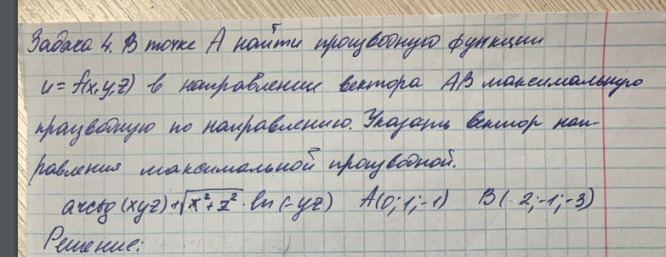 Задача 4. В точке А найти производную функции
u = f(x,y,z) в направлении вектора АВ максимальную
працводную по направлению. Указать вектор нап-
равления максимальной процводной.
arcctg (xyz) + √x²+z² · ln(-yz) A(0;1;-1) B(-2;-1;-3)
Решение: